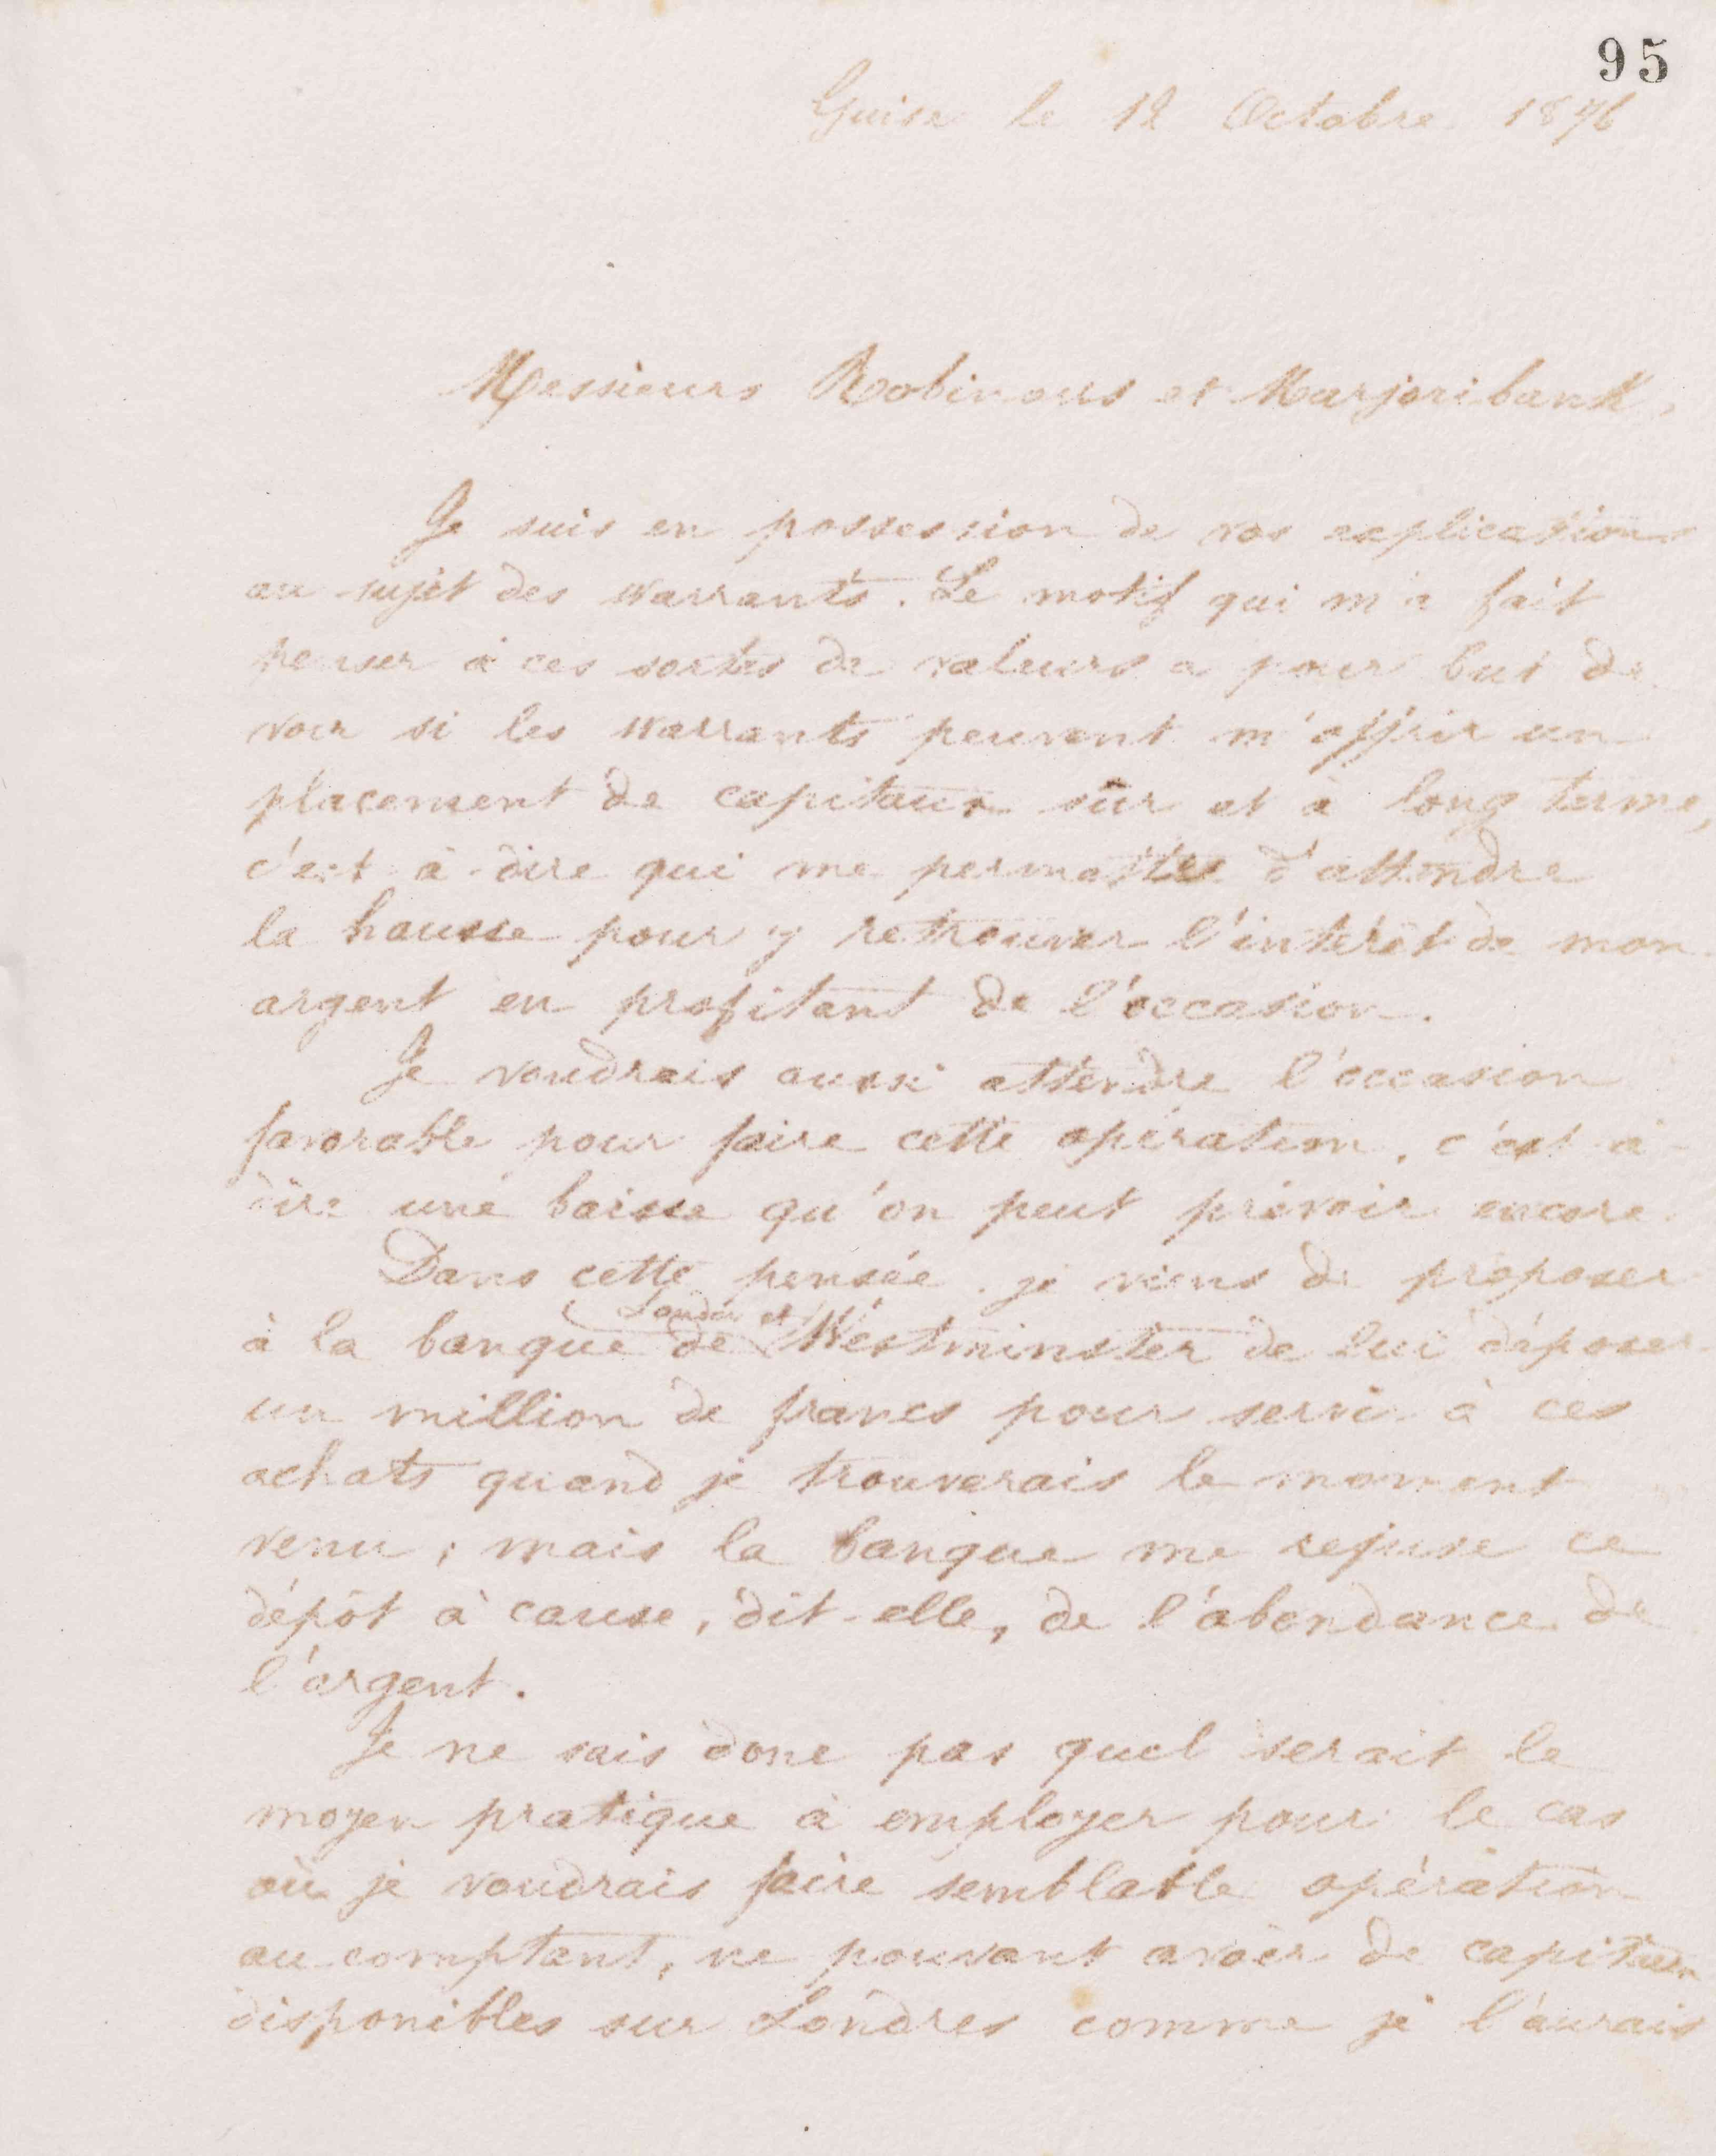 95
Guise le 12 Octobre 1876
Messieurs Robinous et Marjoribank,
Je suis en possession de vos explications
au sujet des warrants. Le motif qui m'a fait
penser à ces sortes de valeurs a pour but de
voir si les warrants peuvent m'offrir un
placement de capitaux sûr et à long terme,
c'est à dire qui me permette d'attendre
la hausse pour y retrouver l'intérêt de mon
argent en profitant de l'occasion.
Je voudrais aussi attendre l'occasion
favorable pour faire cette opération, c'est à
dire une baisse qu'on peut prévoir encore.
Dans cette pensée je viens de proposer
London et
à la banque de Westminster de lui déposer
un million de francs pour servir à ces
achats quand je trouverais le moment
venu ; mais la banque me refuse ce
dépôt à cause, dit-elle, de l'abondance de
l'argent.
Je ne sais donc pas quel serait le
moyen pratique à employer pour le cas
où je voudrais faire semblable opération
au comptant, ne pouvant avoir de capitaux
disponibles sur Londres comme je l'aurais